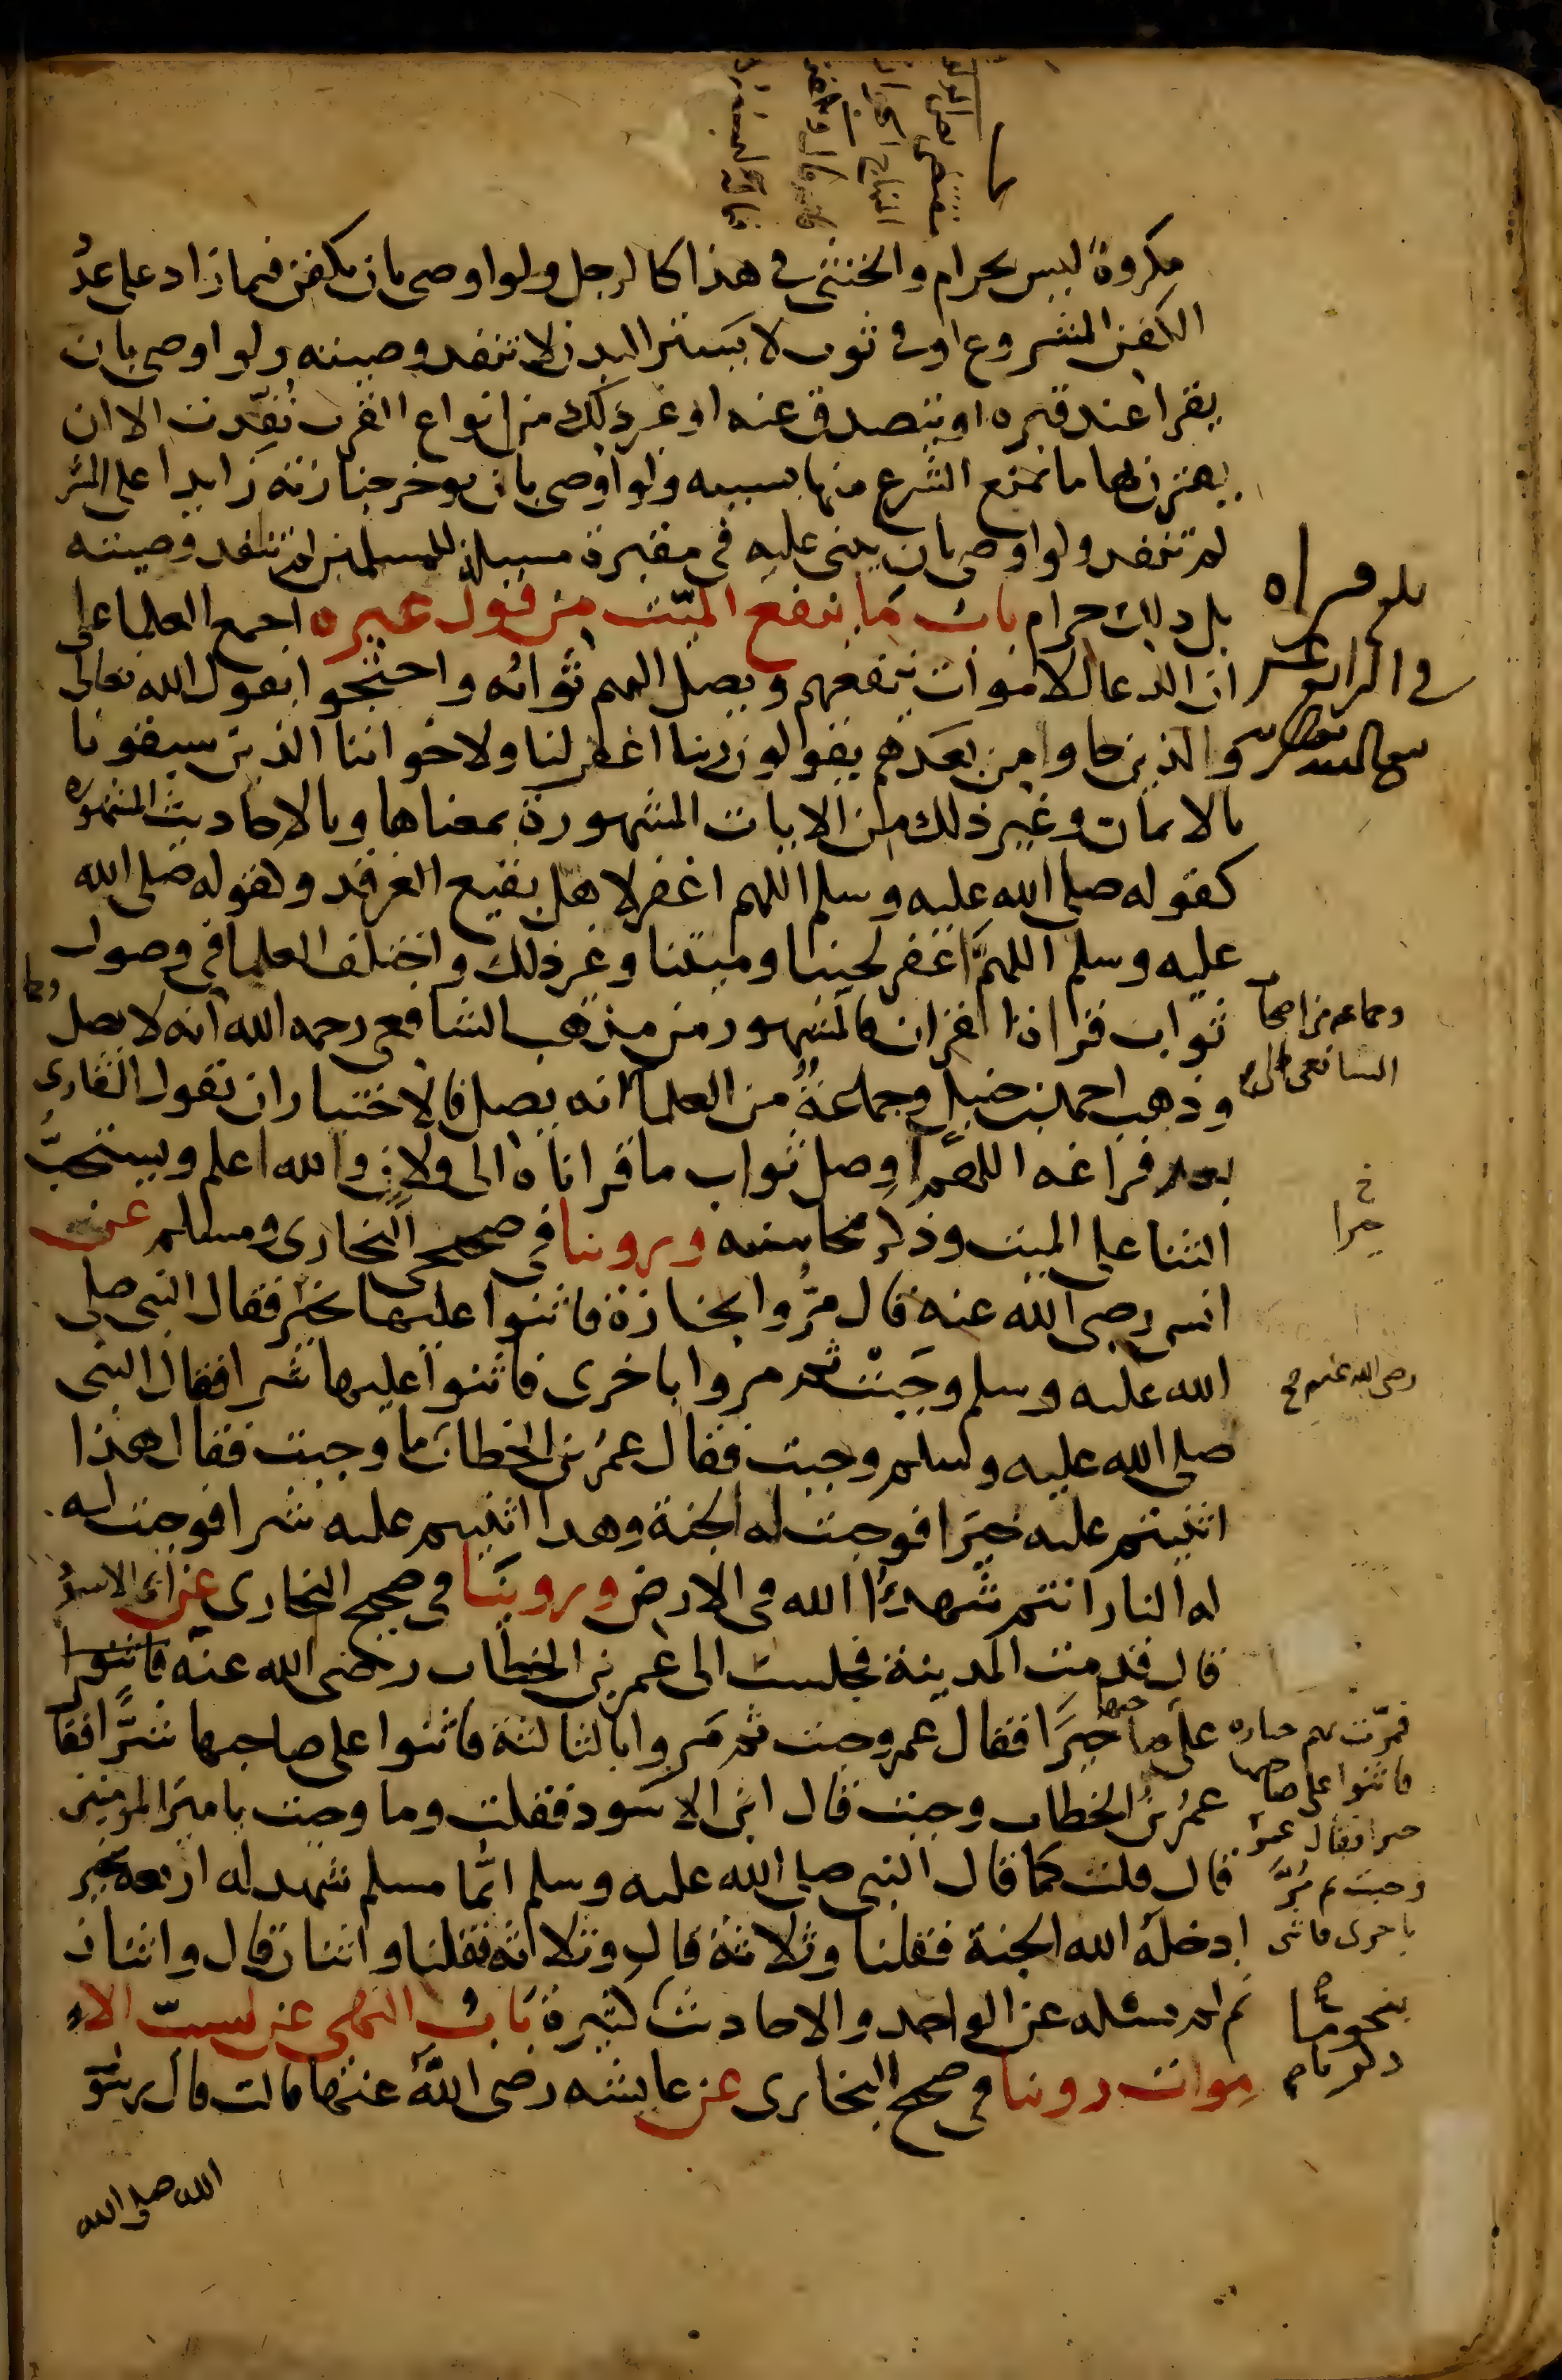 مكروه ليس بحرام والخنثى في هذا كالرجل ولو اوصى بان يكفن فيما زاد على عدد
الكفن المشروع او في ثوب لا يستر البدن لا تنفد وصيته ولو اوصى بان
يقرا عند قبره او يتصدق عنه او غير ذلك من انواع القرب نُفِّدت الا ان
يقترن بها ما يمنع الشرع منها بسببه ولو اوصى بان يوخر جنازته زايدا على المشر
لم تنفد ولو اوصى بان يبنى عليه في مقبرة مسبلة للمسلمين لم تنفد وصيته
بل ذلك حرام باب ما ينفع الميّت من قول غيره اجمع العلما على
ان الدعا للاموات ينفعهم ويصل اليهم ثوابه واحتجوا بقول الله تعالى
والذين جاوا من بعدهم يقولون ربنا اغفر لنا ولاخواننا الذين سبقونا
بالايمان وغير ذلك من الايات المشهورة بمعناها وبالاحاديث المشهورة
كقوله صلى الله عليه وسلم اللهم اغفر لاهل بقيع الغرقد وكقوله صلى الله
عليه وسلم اللهمَّ اغفر لحينا وميتنا وغير ذلك واختلف العلما في وصول
ثواب قراة القران فالمشهور من مذهب الشافعي رحمه الله انه لا يصل
وذهب احمد بن حنبل وجماعةٌ من العلما انه يصل فالاختيار ان يقول القارى
بعد فراغه اللهم اوصل ثواب ما قراناه الى ولان والله اعلم ويستحبُّ
الثنا على الميت وذكر محاسنه وروينا في صحيحى البخارى ومسلم عن
انس رضى الله عنه قال مرُّوا بجنازة فاثنوا عليها بخير فقال النبى صلى
الله عليه وسلم وجَبَتْ ثم مروا باخرى فاثنوا عليها شرا فقال النبى
صلى الله عليه وسلم وجبت فقال عمر بن الخطاب ما وجبت فقال هذا
اثنيتم عليه خيرا فوجبت له الجنة وهذا اثنيتم عليه شرا فوجبت له
له النار انتم شهدا الله في الارض وروينا في صحيح البخارى عن ابى الاسود
قال قدمت المدينة فجلست الى عمر بن الخطاب رضى الله عنه فاثنوا
على صاحبها خيرًا فقال عمر وجبت ثم مروا بالثالثة فاثنوا على صاحبها شرًّا فقا
عمر بن الخطاب وجبت قال ابو الاسود فقلت وما وجبت يا امير المومنين
قال قلت كما قال النبى صلى الله عليه وسلم ايُّما مسلم شهد له اربعة بخير
ادخله الله الجنة فقلنا وثلاثة قال وثلاثة فقلنا واثنان قال واثنان
ثم لم نسئله عن الواحد والاحاديث كثيرة باب النهى عن سبّ الا
موات روينا في صحيح البخارى عن عايشه رضى الله عنها قالت قال رسو
الله صلى الله
وجماعه من اصحا
الشافعى
خ
خيرا
رضى الله عنهم صح
فمرّت بهم جنازه
فاثنوا على صاحبها
خيرا فقال عمر
وجبت ثم مُرَّ
باخرى فاثنى
بنحوها